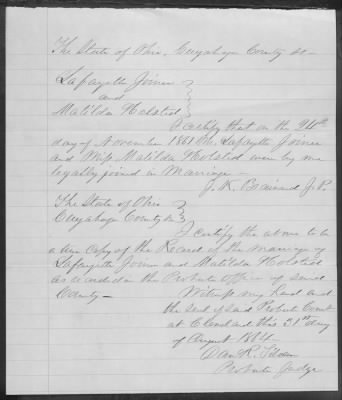 The State of Ohio, Cuyahoga County ss—
Lafayette Joiner
and
Matilda Holsted
I certify that on the 24th
day of November 1861 Mr. Lafayette Joiner
and Miss Matilda Holsted were by me
legally joined in Marriage —
J. K. Brainard J.P.
The State of Ohio
Cuyahoga County ss
I certify the above to be
a true Copy of the Record of the marriage of
Lafayette Joiner and Matilda Holsted
as recorded in the Probate Office of said
County —
Witness my hand and
the seal of said Probate Court
at Cleveland this 31st day
of August 1864
Dan R. Tilden
Probate Judge